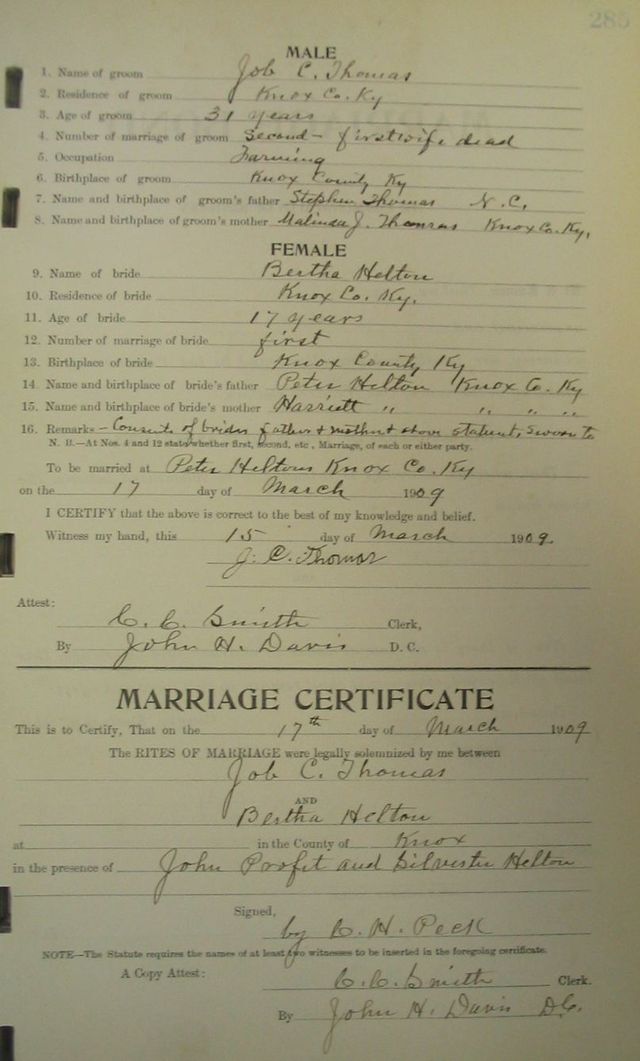 285
MALE
1. Name of groom Job C. Thomas
2. Residence of groom Knox Co. Ky
3. Age of groom 31 years
4. Number of marriage of groom Second - first wife dead
5. Occupation Farming
6. Birthplace of groom Knox County Ky
7. Name and birthplace of groom's father Stephen Thomas N. C.
8. Name and birthplace of groom's mother Malinda J. Thomas Knox Co. Ky.
FEMALE
9. Name of bride Bertha Helton
10. Residence of bride Knox Co. Ky.
11. Age of bride 17 years
12. Number of marriage of bride first
13. Birthplace of bride Knox County Ky
14 Name and birthplace of bride's father Peter Helton Knox Co. Ky
15. Name and birthplace of bride's mother Harriett " " " "
16. Remarks - Consent of brides father & mother & above statemt, Sworn to
N. B.—At Nos. 4 and 12 state whether first, second, etc., Marriage, of each or either party.
To be married at Peter Heltons Knox Co. Ky
on the 17 day of March 1909
I CERTIFY that the above is correct to the best of my knowledge and belief.
Witness my hand, this 15 day of March 1909.
J. C. Thomas
Attest:
C. C. Smith Clerk,
By John H. Davis D. C.
MARRIAGE CERTIFICATE
This is to Certify, That on the 17th day of March 1909
The RITES OF MARRIAGE were legally solemnized by me between
Job C. Thomas
AND
Bertha Helton
at in the County of Knox
in the presence of John Profit and Silvester Helton
Signed,
by C. H. Peck
NOTE—The Statute requires the names of at least two witnesses to be inserted in the foregoing certificate.
A Copy Attest: C. C. Smith Clerk.
By John H. Davis D.C.